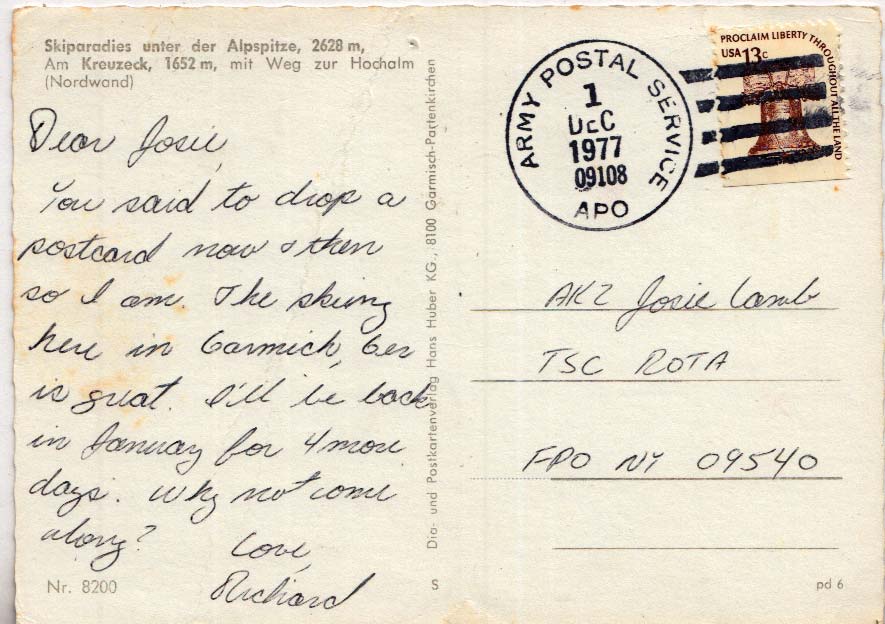 Skiparadies unter der Alpspitze, 2628 m,
Am Kreuzeck, 1652 m, mit Weg zur Hochalm
(Nordwand)
Dear Josie,
You said to drop a
postcard now & then
so I am. The skiing
here in Garmich, Ger
is great. I'll be back
in January for 4 more
days. Why not come
along?
Love,
Richard
Nr. 8200
Dia- und Postkartenverlag Hans Huber KG., 8100 Garmisch-Partenkirchen
S
ARMY POSTAL SERVICE
1
DEC
1977
09108
APO
PROCLAIM LIBERTY THROUGHOUT ALL THE LAND
USA 13c
AK2 Josie Lamb
TSC ROTA
FPO NY 09540
pd 6